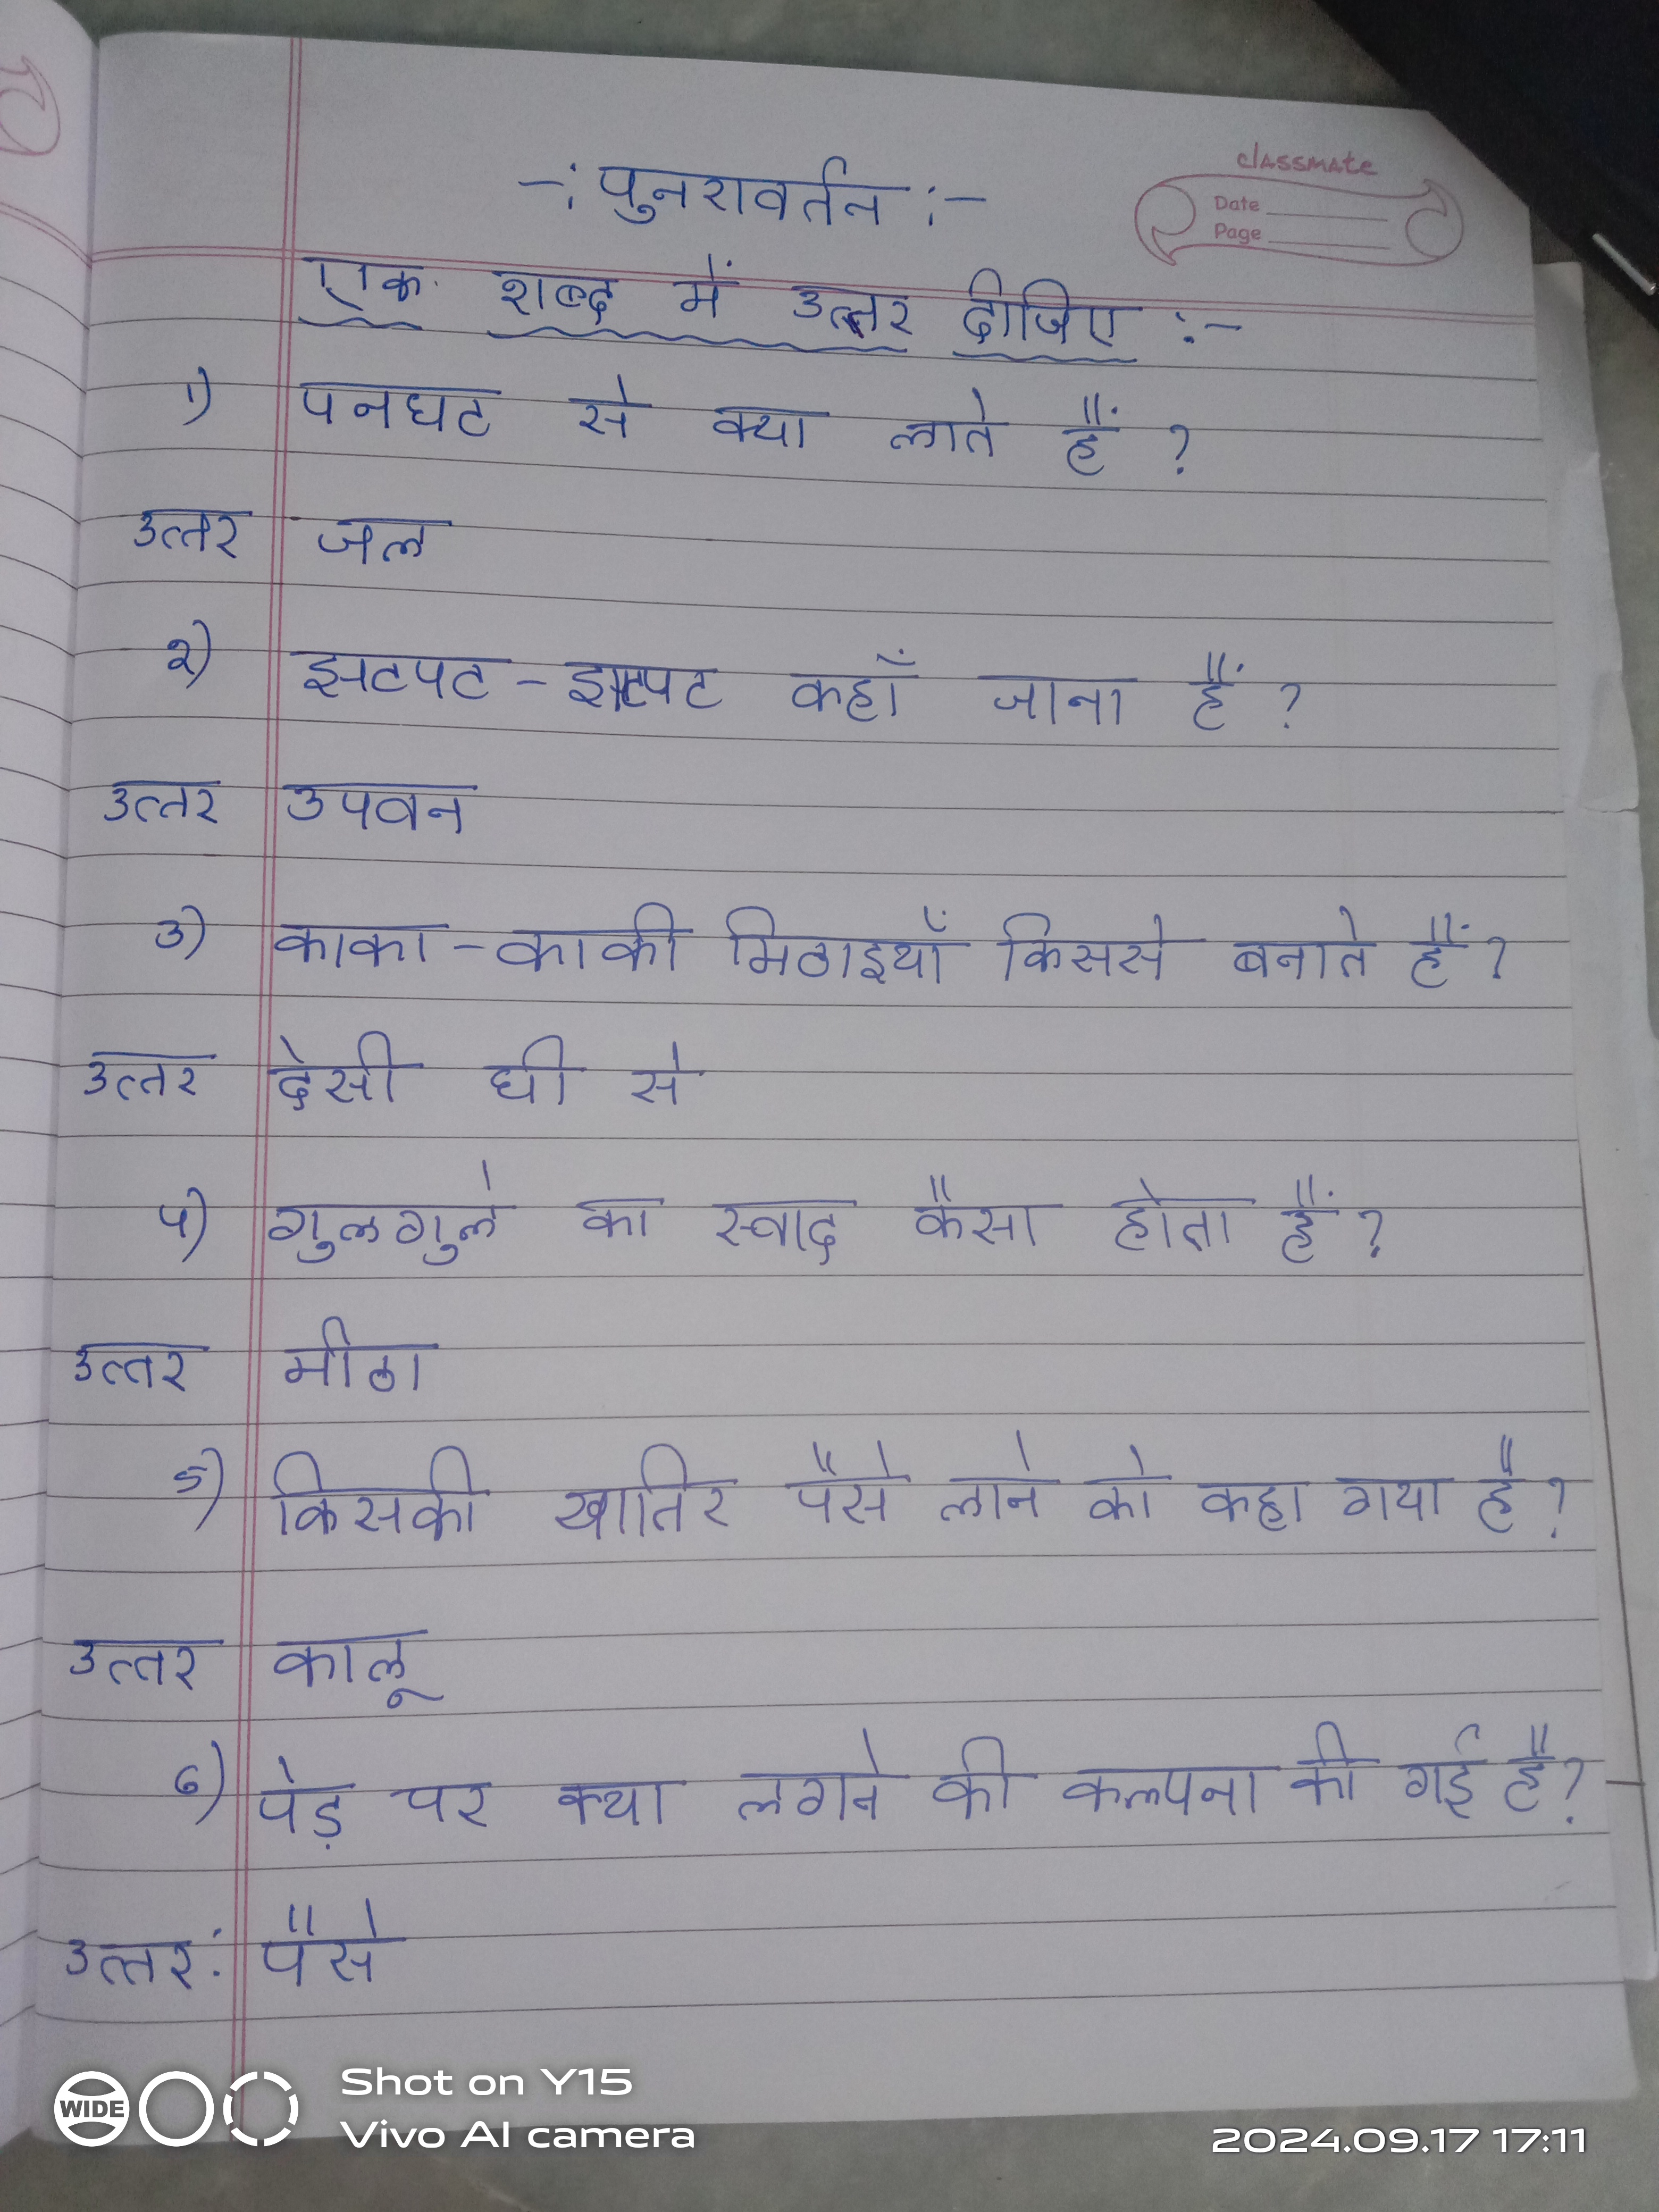 classmate
Date
Page
-: पुनरावर्तन :-
एक शब्द में उत्तर दीजिए :-
1) पनघट से क्या लाते हैं ?
उत्तर जल
२) झटपट - झटपट कहाँ जाना हैं ?
उत्तर उपवन
3) काका - काकी मिठाइयाँ किससे बनाते हैं ?
उत्तर देसी घी से
4) गुलगुले का स्वाद कैसा होता हैं ?
उत्तर मीठा
5) किसकी खातिर पैसे लाने को कहा गया है ?
उत्तर कालू
6) पेड़ पर क्या लगने की कल्पना की गई है ?
उत्तर: पैसे
WIDE
Shot on Y15
Vivo AI camera
2024.09.17 17:11